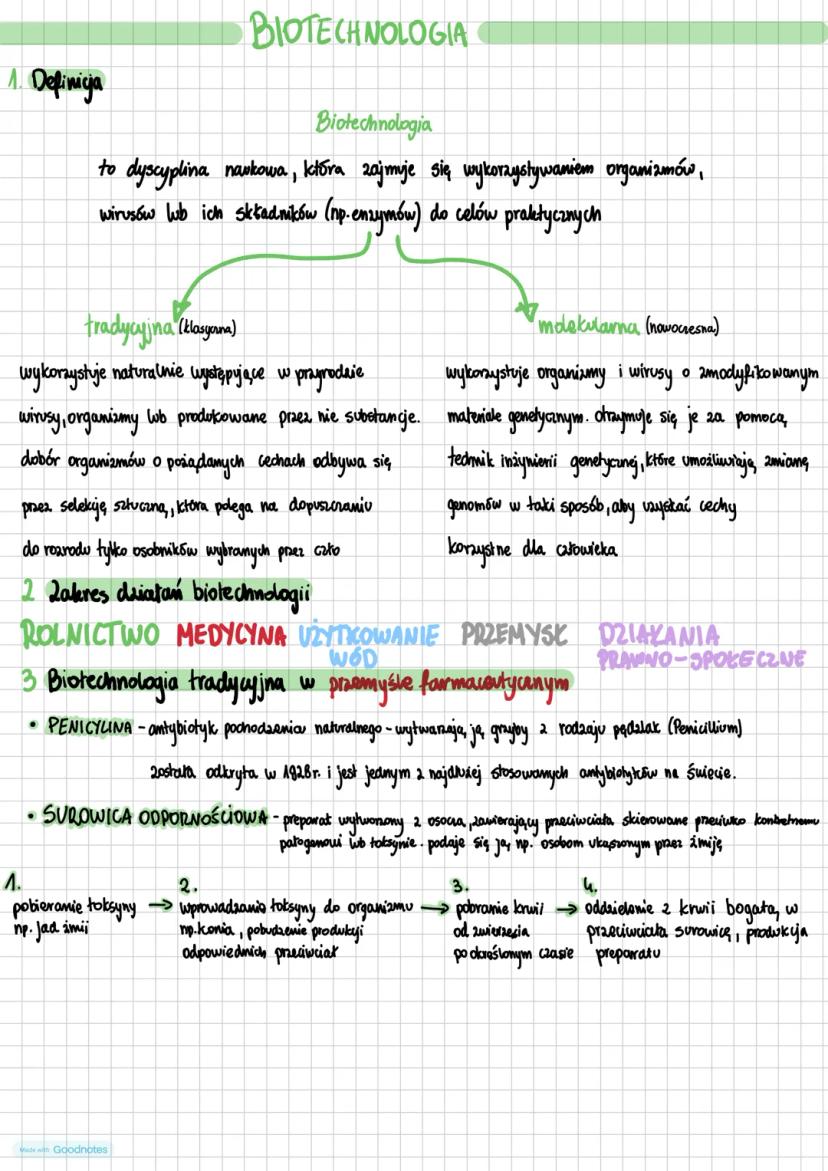 BIOTECHNOLOGIA
1. Definicja
Biotechnologia
to dyscyplina naukowa, która zajmuje się wykorzystywaniem organizmów,
wirusów lub ich składników (np. enzymów) do celów praktycznych
tradycyjna (klasyczna)
wykorzystuje naturalnie występujące w przyrodzie
wirusy, organizmy lub produkowane przez nie substancje.
dobór organizmów o pożądanych cechach odbywa się
przez selekcję sztuczną, która polega na dopuszczaniu
do rozrodu tylko osobników wybranych przez czło
molekularna (nowoczesna)
wykorzystuje organizmy i wirusy o zmodyfikowanym
materiale genetycznym. otrzymuje się je za pomocą
technik inżynierii genetycznej, które umożliwiają zmianę
genomów w taki sposób, aby uzyskać cechy
korzystne dla człowieka
2 Zakres działań biotechnologii
ROLNICTWO MEDYCYNA UŻYTKOWANIE PRZEMYSŁ DZIAŁANIA
WÓD PRAWNO-SPOŁECZNE
3 Biotechnologia tradycyjna w przemyśle farmaceutycznym
• PENICYLINA - antybiotyk pochodzenia naturalnego - wytwarzają ją grzyby z rodzaju pędzlak (Penicillium)
została odkryta w 1928r. i jest jednym z najdłużej stosowanych antybiotyków na świecie.
• SUROWICA ODPORNOŚCIOWA - preparat wytworzony z osocza, zawierający przeciwciała skierowane przeciwko konkretnemu
patogenowi lub toksynie. podaje się ją np. osobom ukąszonym przez żmiję
1.
pobieranie toksyny →
np. jad żmii
2.
wprowadzanie toksyny do organizmu →
np. konia, pobudzenie produkcji
odpowiednich przeciwciał
3.
pobranie krwii →
od zwierzęcia
po określonym czasie
4.
oddzielenie z krwii bogatą w
przeciwciała surowicę, produkcja
preparatu
Made with Goodnotes